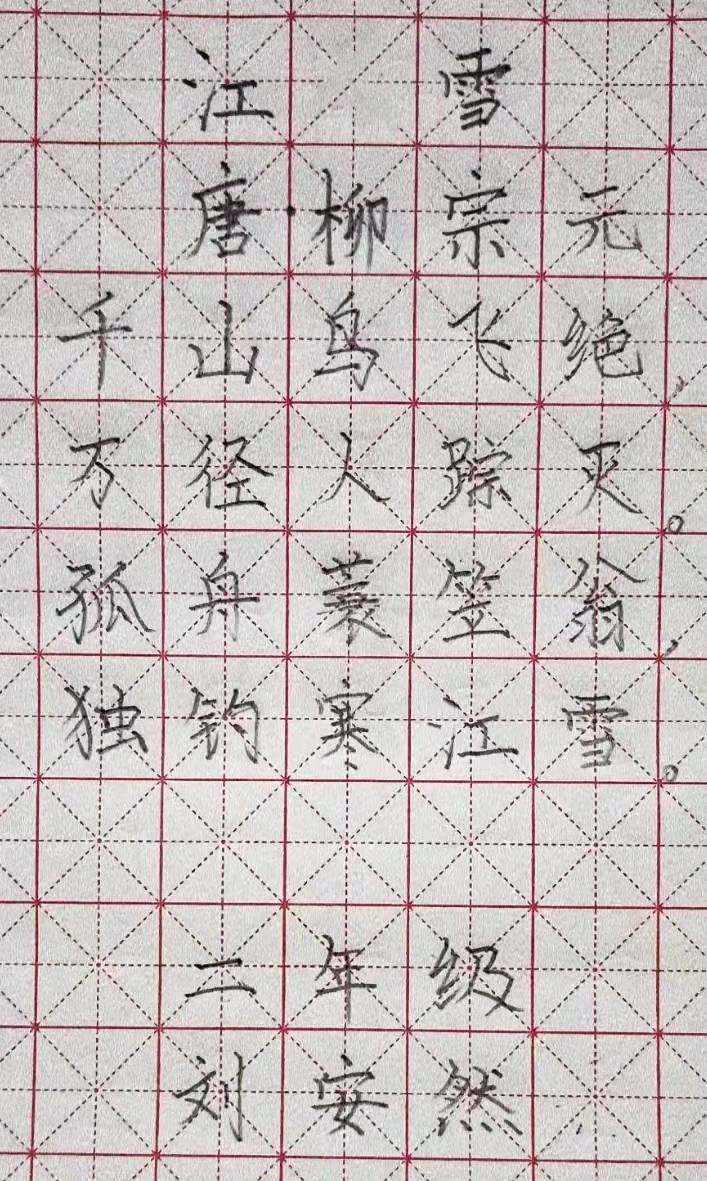 江 雪
唐·柳宗元
千山鸟飞绝,
万径人踪灭。
孤舟蓑笠翁,
独钓寒江雪。
二年级
刘安然